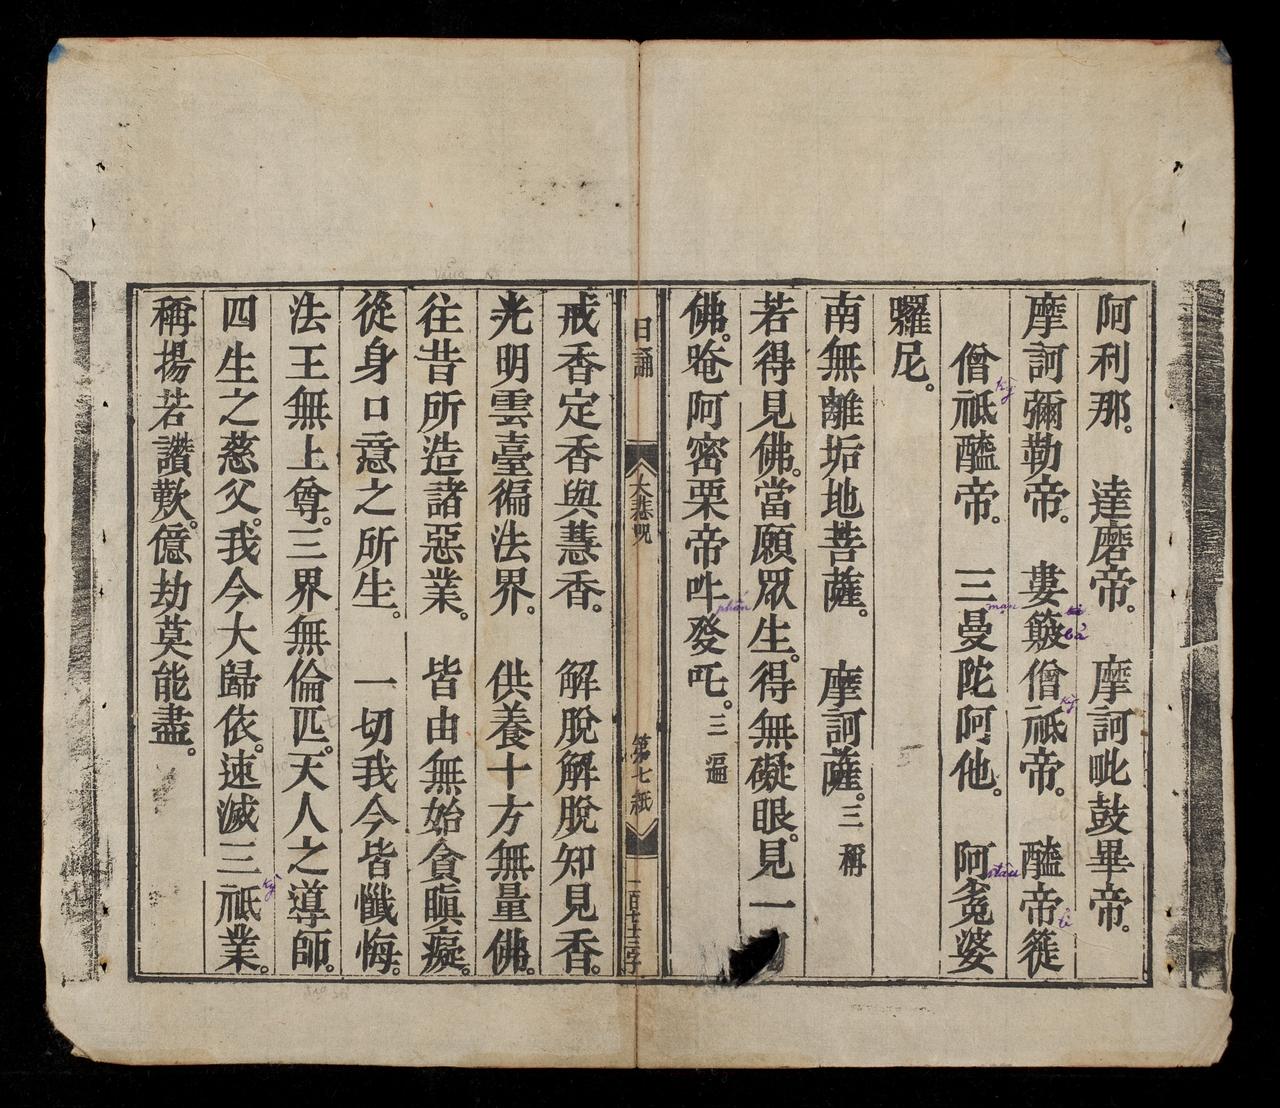 阿利那。 達磨帝。 摩訶毗鼓畢帝。
摩訶彌勒帝。 婁簸僧祇帝。 醯帝簁
bả
kỳ
僧祇醯帝。 三曼陀阿他。 阿㝹婆
kỳ
mạn
囉尼。
南無離垢地菩薩。 摩訶薩。三稱
若得見佛。當願眾生。得無礙眼。見一
佛。唵阿密栗帝吽癹吒。三遍
phấn
日誦 大悲咒 第七紙 一百七十三字
戒香定香與慧香。 解脫解脫知見香。
光明雲臺徧法界。 供養十方無量佛。
往昔所造諸惡業。 皆由無始貪瞋癡。
從身口意之所生。 一切我今皆懺悔。
法王無上尊。三界無倫匹。天人之導師。
四生之慈父。我今大歸依。速滅三祇業。
kỳ
稱揚若讚歎。億劫莫能盡。